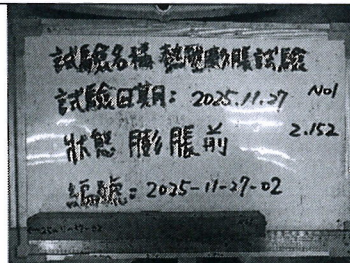 試驗名稱 熱壓膨脹試驗
試驗日期: 2025.11.27 No1
2.152
狀態 膨脹前
編號: 2025-11-27-02